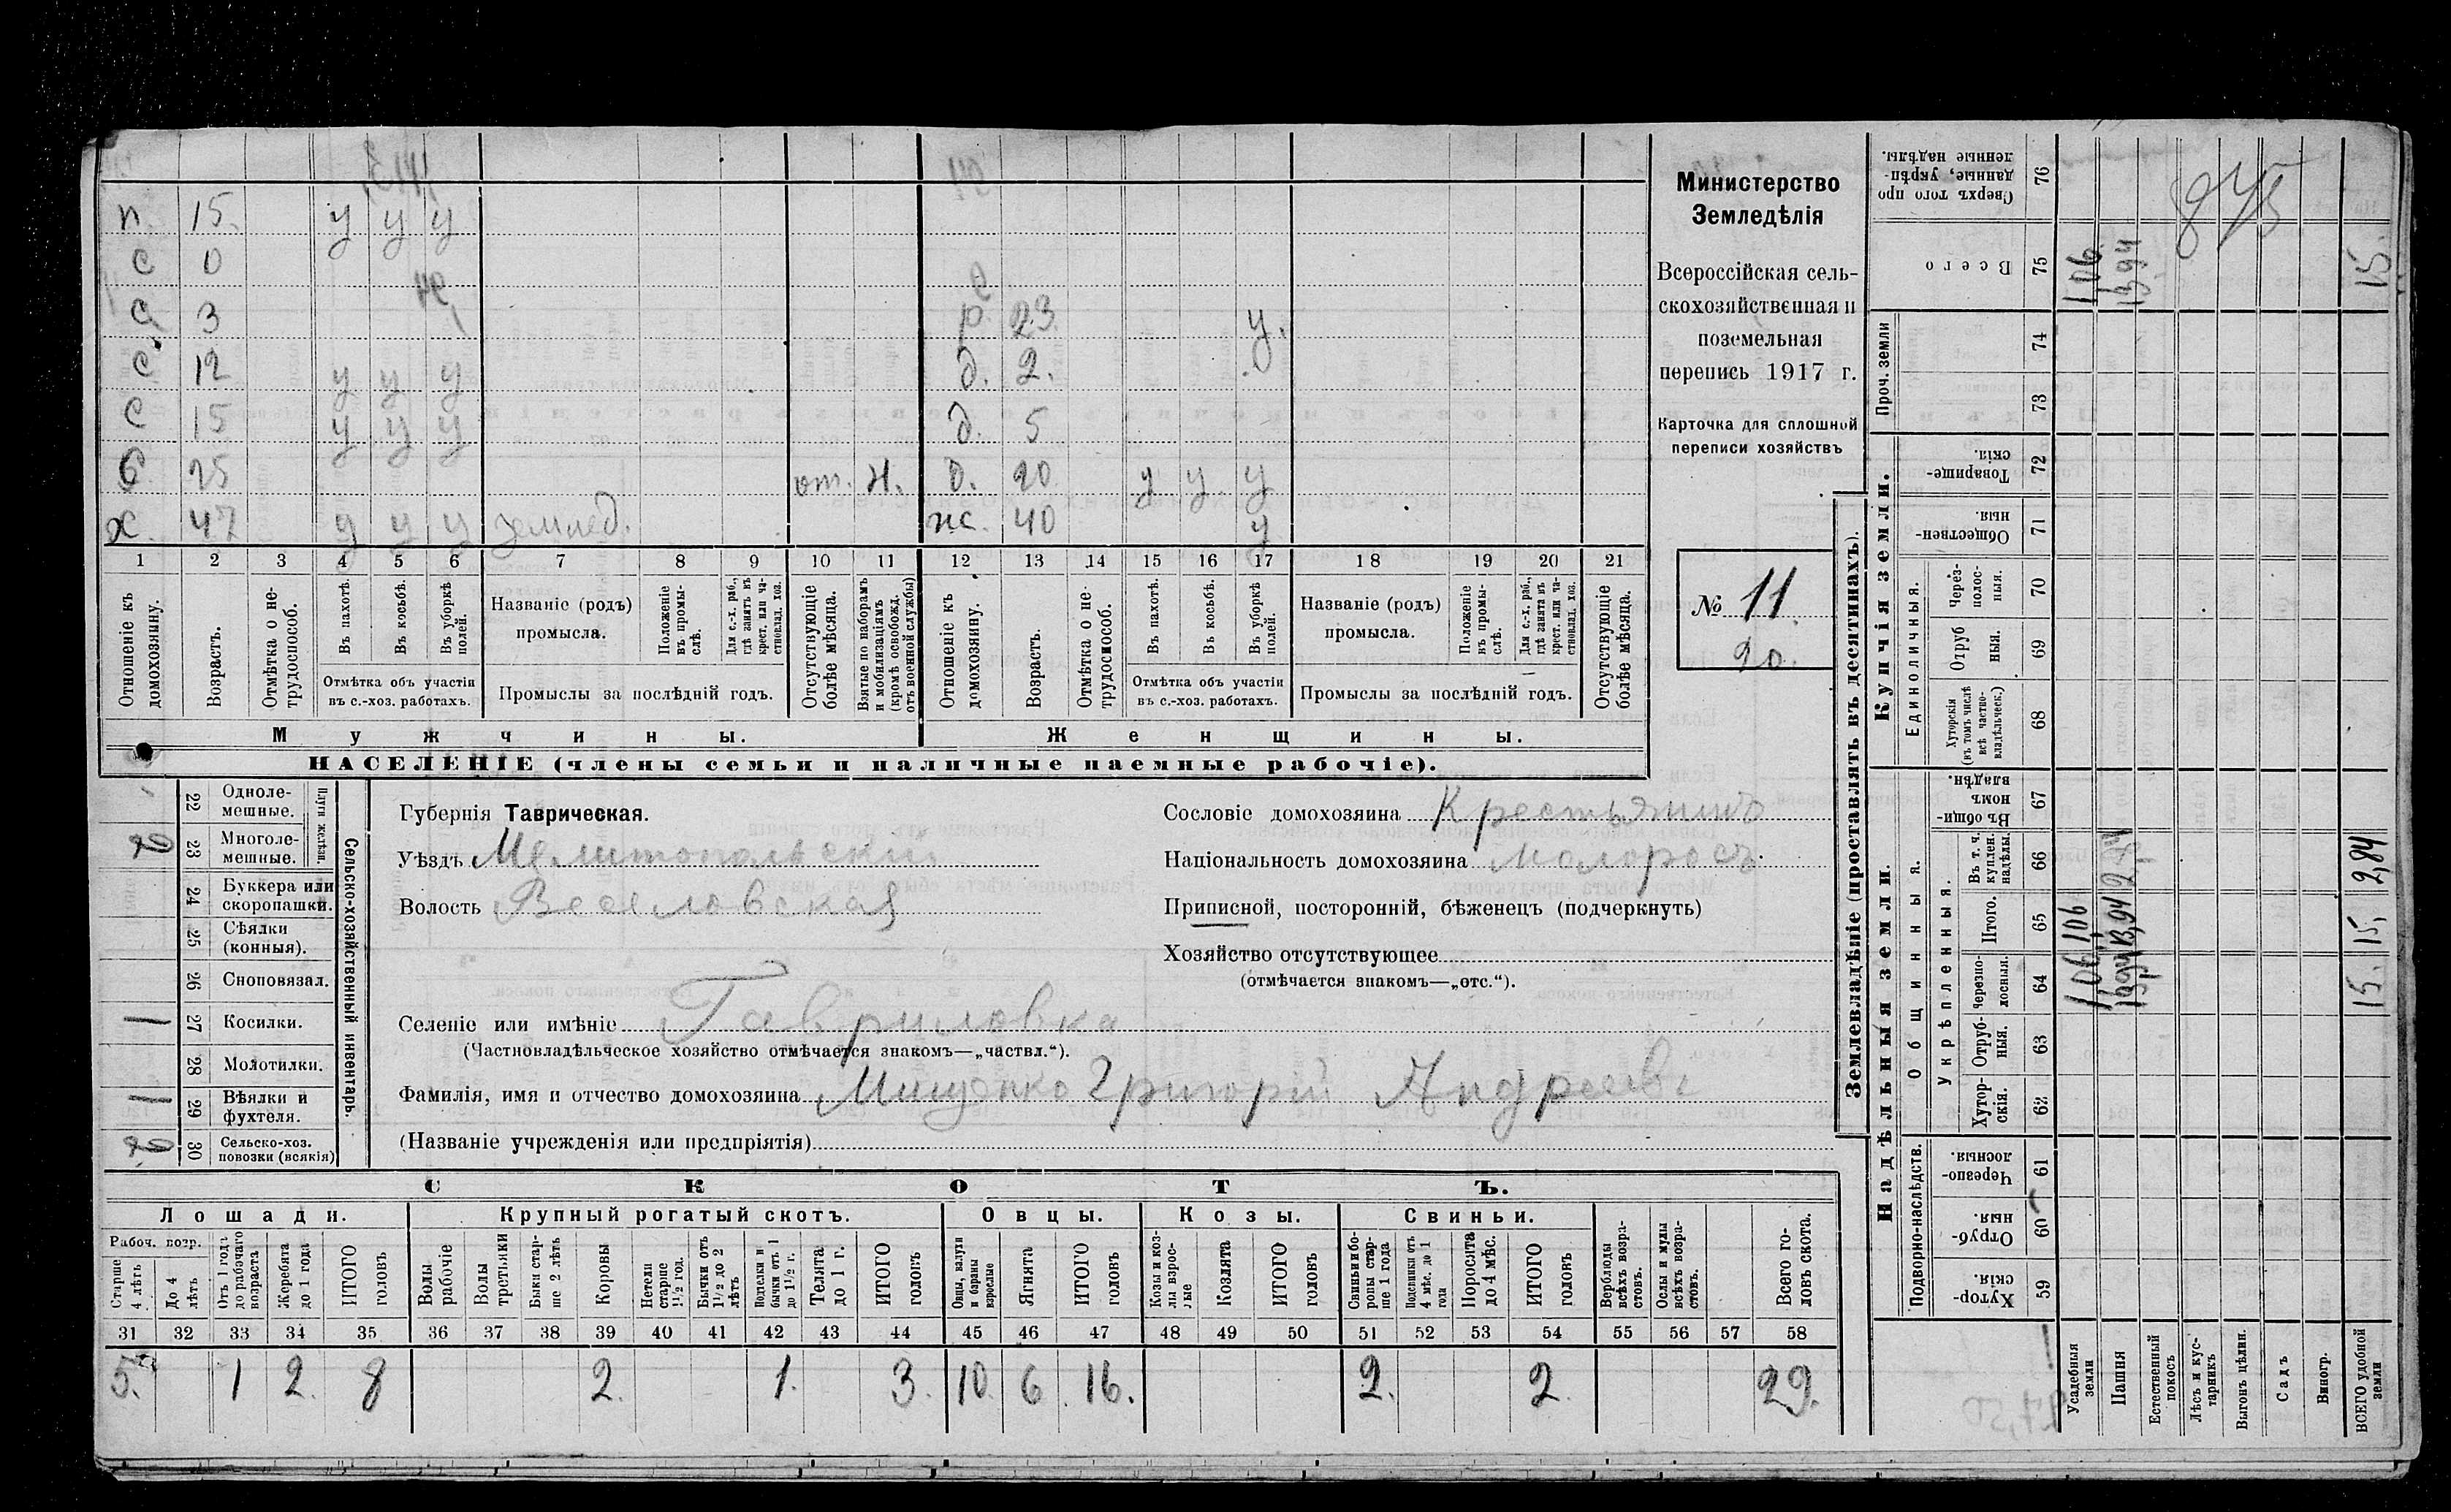 п. 15. у у у
с 0
с 3 р. 23. у.
с 12 у у у д. 2.
с 15 у у у д. 5
с 25 от. н. д. 20 у у у
х. 47 у у у землед. ж. 40 у
1 2 3 4 5 6 7 8 9 10 11 12 13 14 15 16 17 18 19 20 21
Отношеніе къ домохозяину.
Возрастъ.
Отмѣтка о не-трудоспособ.
Въ пахотѣ.
Въ косьбѣ.
Въ уборкѣ полей.
Отмѣтка объ участіи
въ с.-хоз. работахъ.
Названіе (родъ)
промысла.
Положеніе въ промы-слѣ.
Для с.-х. раб., гдѣ занятъ въ крест. или ча-стновлад. хоз.
Промыслы за послѣдній годъ.
Отсутствующіе болѣе мѣсяца.
Взятые по наборамъ и мобилизаціямъ (кромѣ освобожд. отъ военной службы)
Отношеніе къ домохозяину.
Возрастъ.
Отмѣтка о не-трудоспособ.
Въ пахотѣ.
Въ косьбѣ.
Въ уборкѣ полей.
Отмѣтка объ участіи
въ с.-хоз. работахъ.
Названіе (родъ)
промысла.
Положеніе въ промы-слѣ.
Для с.-х. раб., гдѣ занята въ крест. или ча-стновлад. хоз.
Промыслы за послѣдній годъ.
Отсутствующіе болѣе мѣсяца.
Мужчины.
Женщины.
НАСЕЛЕНІЕ (члены семьи и наличные наемные рабочіе).
Министерство
Земледѣлія
Всероссійская сель-
скохозяйственная и
поземельная
перепись 1917 г.
Карточка для сплошной
переписи хозяйствъ
№ 11.
20.
Сельско-хозяйственный инвентарь.
Плуги желѣзн.
22 Однолемешные.
2 23 Многолемешные.
24 Буккера или скоропашки.
25 Сѣялки (конныя).
26 Сноповязал.
1 27 Косилки.
28 Молотилки.
1 29 Вѣялки и фухтеля.
2 30 Сельско-хоз. повозки (всякія)
Губернія Таврическая.
Уѣздъ Мелитопольский
Волость Веселовская
Сословіе домохозяина Крестьянинъ
Національность домохозяина Малороссъ
Приписной, посторонній, бѣженецъ (подчеркнуть)
Хозяйство отсутствующее
(отмѣчается знакомъ—„отс.“).
Селеніе или имѣніе Гавриловка
(Частновладѣльческое хозяйство отмѣчается знакомъ—„частвл.“).
Фамилія, имя и отчество домохозяина Мищенко Григорій Андреевъ
(Названіе учрежденія или предпріятія)
СКОТЪ.
Лошади. Крупный рогатый скотъ. Овцы. Козы. Свиньи.
Рабоч. возр.
Старше 4 лѣтъ
До 4 лѣтъ
Отъ 1 года до рабочаго возраста
Жеребята до 1 года
ИТОГО головъ
Волы рабочіе
Волы третьяки
Быки стар-ше 2 лѣтъ
Коровы
Нетели старше 1½ год.
Бычки отъ 1½ до 2 лѣтъ
Подтелки и бычки отъ 1 до 1½ г.
Телята до 1 г.
ИТОГО головъ
Овцы, валухи и бараны взрослые
Ягнята
ИТОГО головъ
Козы и коз-лы взрос-лые
Козлята
ИТОГО головъ
Свиньи и бо-ровы стар-ше 1 года
Подсвинки отъ 4 мѣс. до 1 года
Поросята до 4 мѣс.
ИТОГО головъ
Верблюды всѣхъ возра-стовъ.
Ослы и мулы всѣхъ возра-стовъ.
Всего го-ловъ скота.
31 32 33 34 35 36 37 38 39 40 41 42 43 44 45 46 47 48 49 50 51 52 53 54 55 56 57 58
5. 1 2. 8 2. 1. 3. 10. 6 16. 2. 2. 29.
Землевладѣніе (проставлять въ десятинахъ).
Купчія земли.
Надѣльныя земли.
Сверхъ того про данные, укрѣп-ленные надѣлы. 76
Всего 75
Проч. земли 74 73
Товарище-скія. 72
Обществен-ныя. 71
Единоличныя.
Черезполос-ныя. 70
Отруб ныя. 69
Хуторскія (въ томъ числѣ всѣ частно-владѣльческ.) 68
Въ общин-номъ владѣн. 67
Общинныя.
Укрѣпленныя.
Въ т. ч. куплен. надѣлы. 66
Итого. 65
Черезпо-лосныя. 64
Отруб-ныя. 63
Хутор-скія. 62
Подворно-наслѣдств.
Черезпо-лосныя. 61
Отруб-ныя. 60
Хутор-скія. 59
Усадебныя земли 106 106 106.
Пашня 13,94 13,94 2,84 13,94
Естественный покосъ
Лѣсъ и кус-тарникъ
Выгонъ цѣлин.
Садъ
Виногр.
ВСЕГО удобной земли 15. 15. 2,84 15.
845